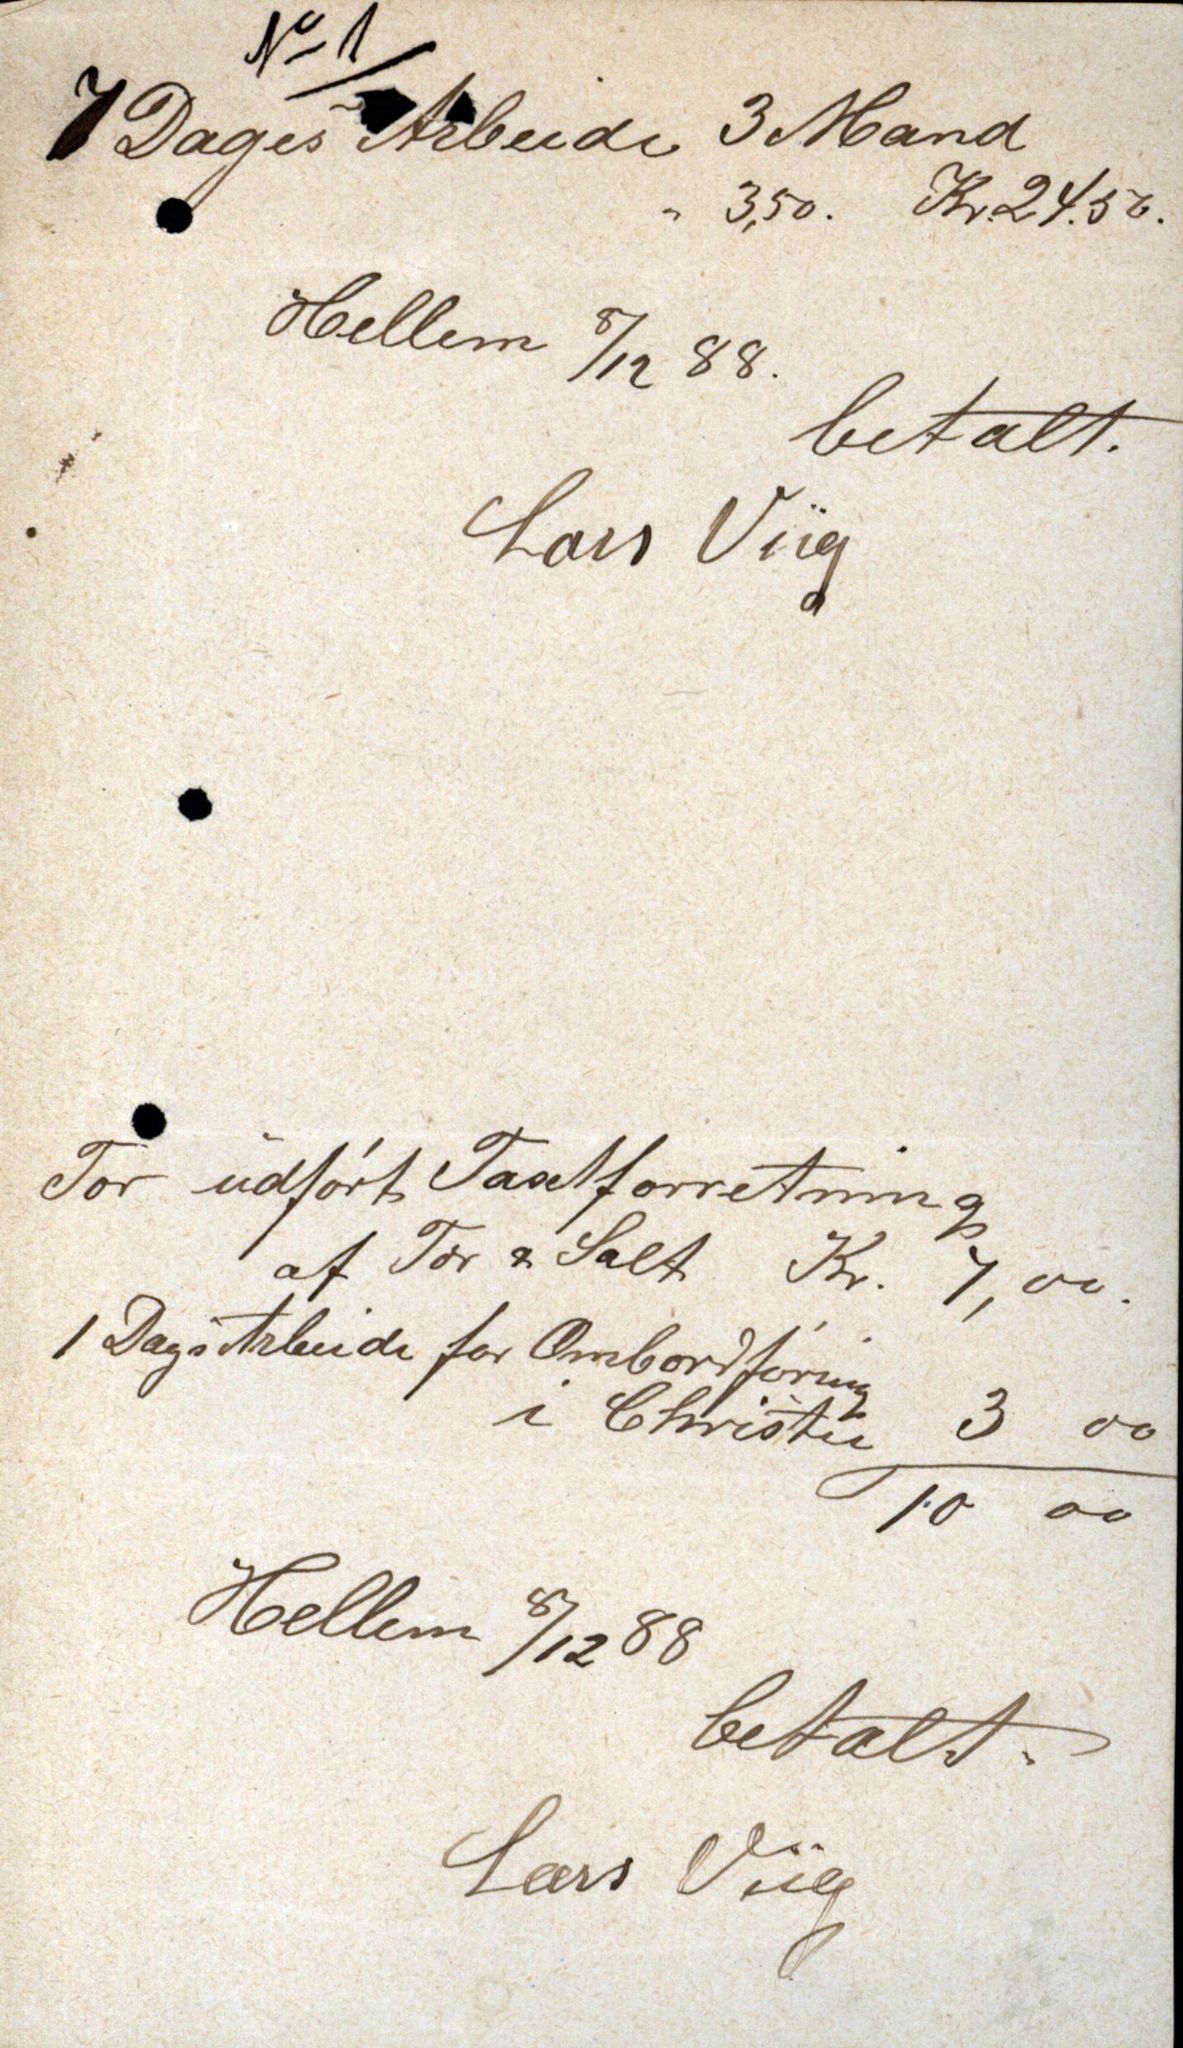 No 1
7 Dages Arbeide 3 Mand
" 3,50. Kr. 24.50.
Hellem 8/12 88.
betalt.
Lars Viig
For udført Taxtforretning
af Tør & Salt Kr. 7,00.
1 Dags Arbeide for Ombordføring
i Christie 3 00
10 00
Hellem 8/12 88
betalt.
Lars Viig